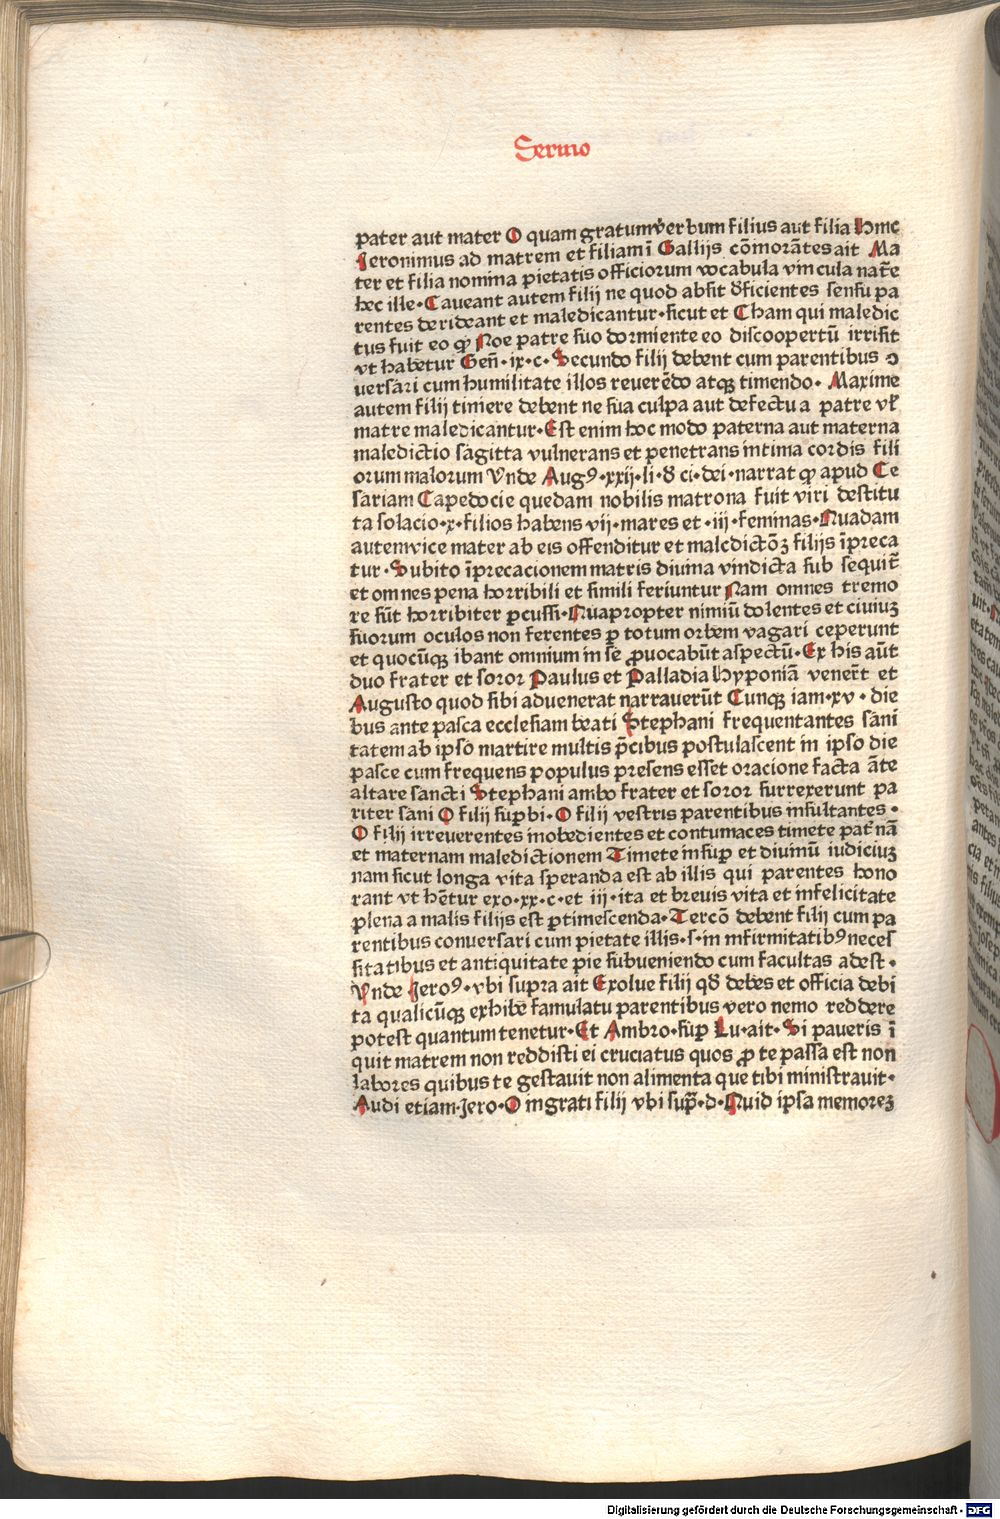 Sermo
pater aut mater O quam gratum v̾erbum filius aut filia Hinc
Jeronimus ad matrem et filiam ī Gallijs cōmorātes ait Ma
ter et filia nomina pietatis officiorum vocabula vincula nat̄e
hec ille · Caueant autem filij ne quod absit d̄ficientes sensu pa
rentes derideant et maledicantur · sicut et Cham qui maledic
tus fuit eo ꝙ Noe patre suo dormiente eo discoopertū irrisit
vt habetur Gen̄ · ix · c · Secundo filij debent cum parentibus ꝯ
uersari cum humilitate illos reuerēdo atqꝫ timendo · Maxime
autem filij timere debent ne sua culpa aut defectu a patre vl̄
matre maledicantur · Est enim hoc modo paterna aut materna
maledictio sagitta vulnerans et penetrans intima cordis fili
orum malorum Vnde Augꝰ · xxij · li · d̄ ci · dei · narrat ꝙ apud Ce
sariam Capedocie quedam nobilis matrona fuit viri destitu
ta solacio · x · filios habens vij · mares et · iij · feminas · Quadam
autem vice mater ab eis offenditur et maledictōꝫ filijs īpreca
tur · Subito īprecacionem matris diuina vindicta sub sequit̄
et omnes pena horribili et simili feriuntur Nam omnes tremo
re sūt horribiter ꝑcussi · Quapropter nimiū dolentes et ciuiuꝫ
suorum oculos non ferentes ꝑ totum orbem vagari ceperunt
et quocūqꝫ ibant omnium in se ꝓuocabūt aspectū · Ex his aūt
duo frater et soror Paulus et Palladia Hyponiā vener̄t et
Augusto quod sibi aduenerat narrauerūt Cunqꝫ iam · xv · die
bus ante pasca ecclesiam beati Stephani frequentantes sāni
tatem ab ipso martire multis p̄cibus postulascent in ipso die
pasce cum frequens populus presens esset oracione facta āte
altare sancti Stephani ambo frater et soror surrexerunt pa
riter sani O filij suꝑbi · O filij vestris parentibus insultantes ·
O filij irreuerentes inobedientes et contumaces timete pat̄nā
et maternam maledictionem Timete insuꝑ et diuinū iudiciuꝫ
nam sicut longa vita speranda est ab illis qui parentes hono
rant vt hētur exo · xx · c · et iij · ita et breuis vita et infelicitate
plena a malis filijs est ꝑtimescenda · Tercō debent filij cum pa
rentibus conuersari cum pietate illis · s · in infirmitatibꝰ neces
sitatibus et antiquitate pie subueniendo cum facultas adest ·
Vnde Jeroꝰ · vbi supra ait Exolue filij qd̄ debes et officia debi
ta qualicūqꝫ exhibe famulatu parentibus vero nemo reddere
potest quantum tenetur · Et Ambro · suꝑ Lu · ait · Si paueris ī
quit matrem non reddisti ei cruciatus quos ꝓ te passa est non
labores quibus te gestauit non alimenta que tibi ministrauit ·
Audi etiam · Jero · O ingrati filij vbi sup̄ · d · Quid ipsa memoreꝫ
Digitalisierung gefördert durch die Deutsche Forschungsgemeinschaft - DFG